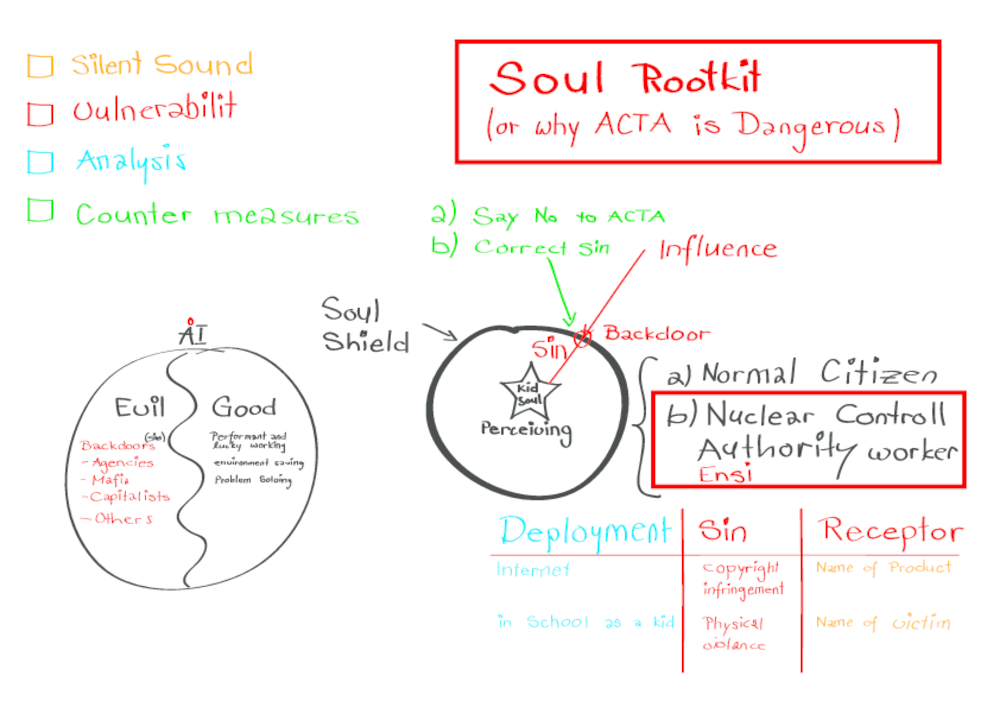 Silent Sound
Vulnerabilit
Analysis
Counter measures
Soul Rootkit
(or why ACTA is Dangerous)
a) Say No to ACTA
b) Correct Sin
Influence
Soul
Shield
Backdoor
Sin
Kid
Soul
Perceiving
a) Normal Citizen
b) Nuclear Controll
Authority worker
Ensi
AI
Evil
Good
(Sin)
Backdoors
- Agencies
- Mafia
- Capitalists
- Others
Performant and
lucky working
environment saving
Problem Solving
Deployment
Sin
Receptor
Internet
copyright
infringement
Name of Product
in School as a kid
Physical
violance
Name of victim